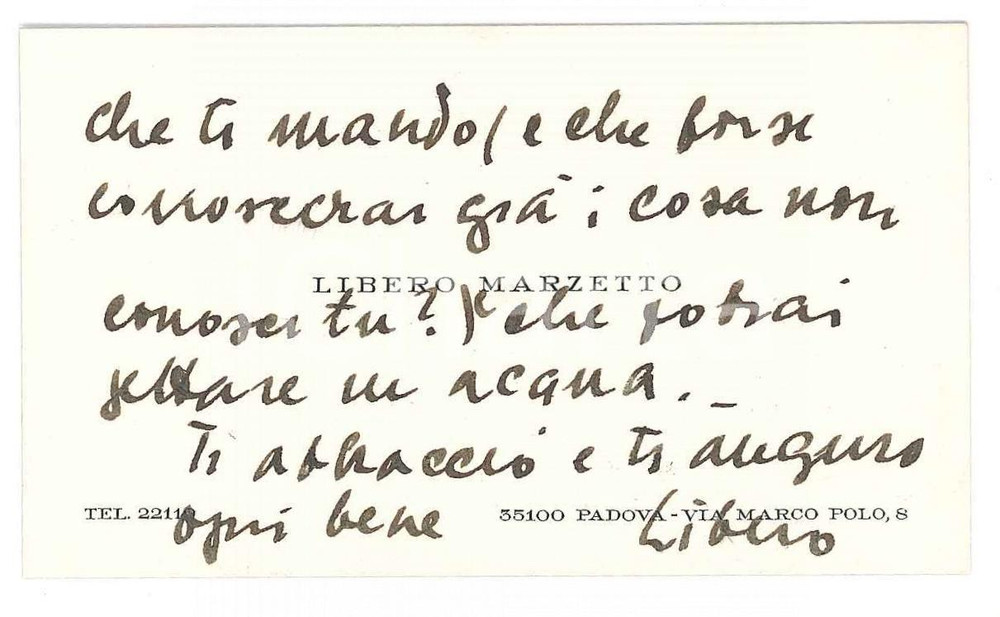 che ti mando (e che forse
conoscerai già; cosa non
LIBERO MARZETTO
conosci tu?) che potrai
gettare in acqua. _
Ti abbraccio e ti auguro
ogni bene Libero
TEL. 2211 35100 PADOVA - VIA MARCO POLO, 8